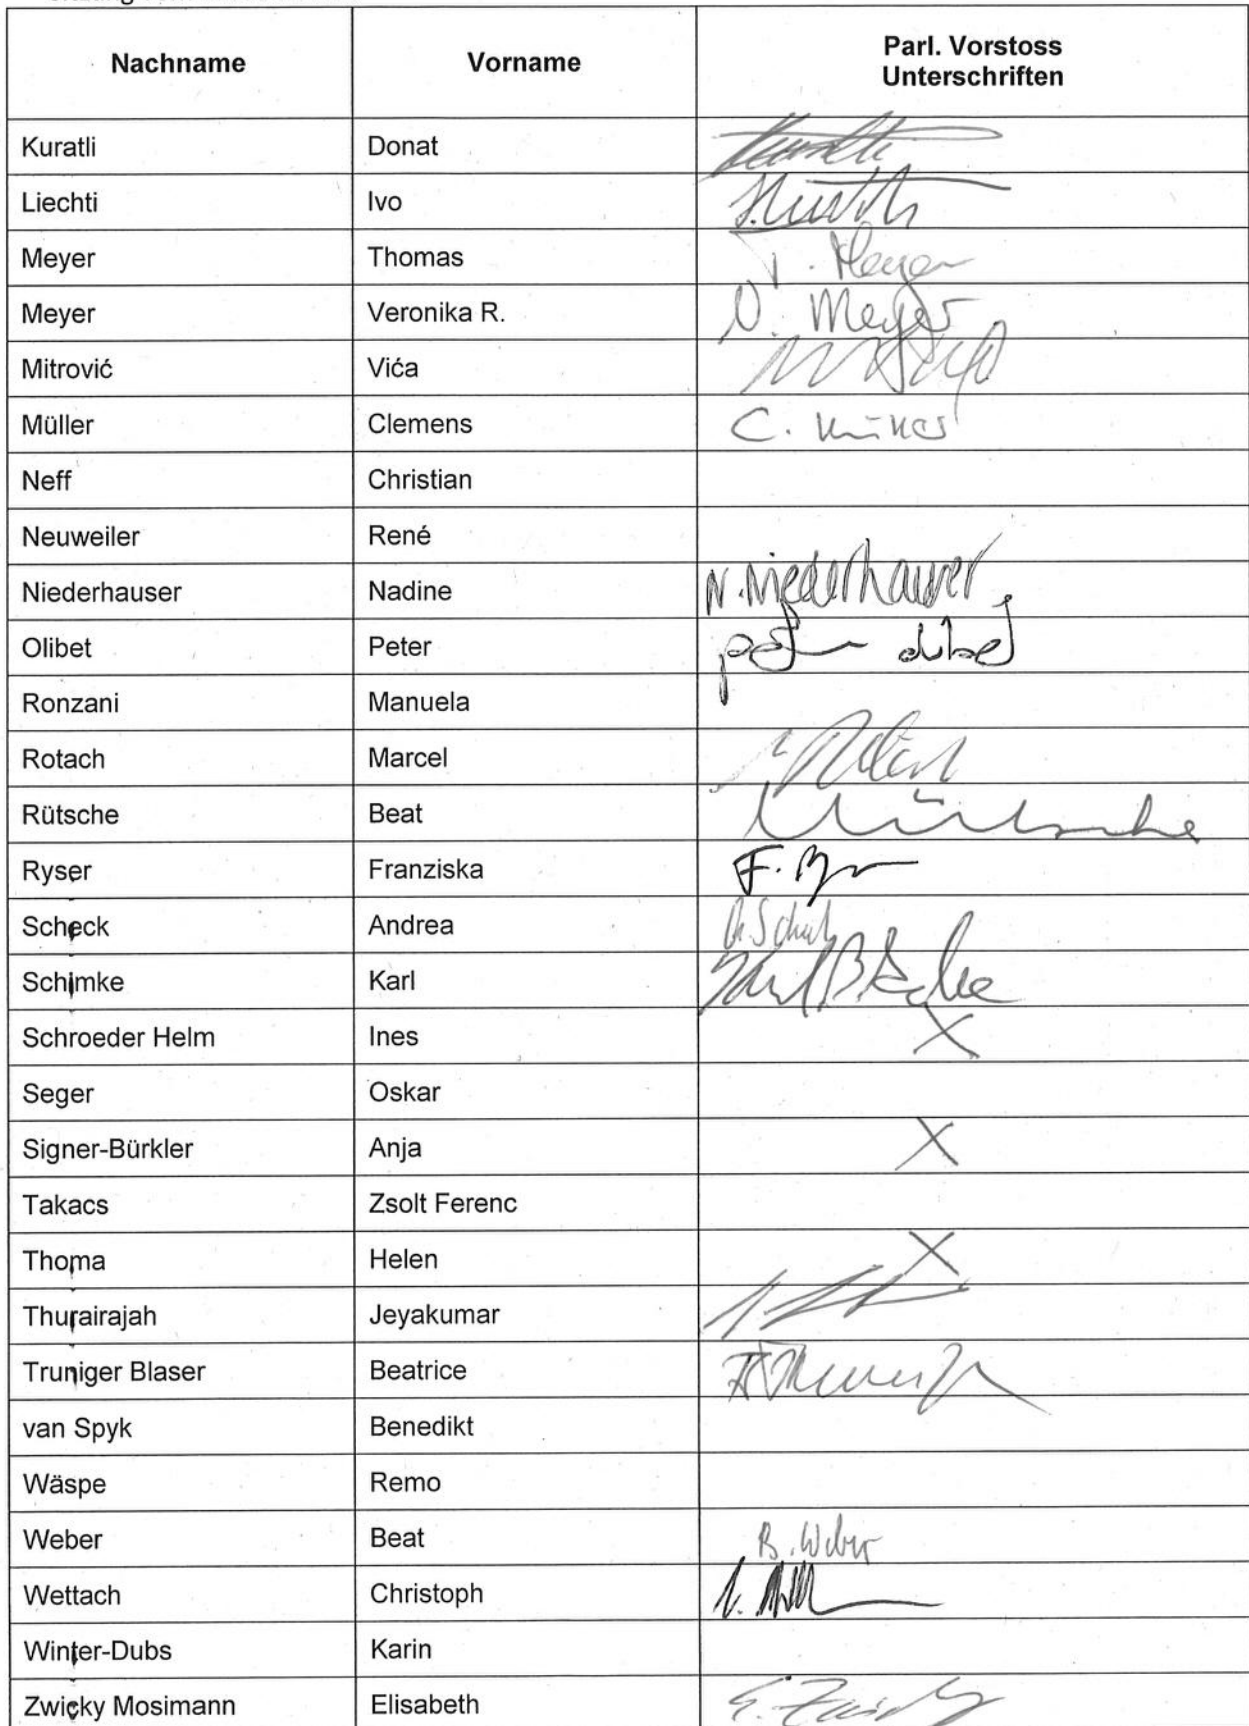 Nachname Vorname Parl. Vorstoss
Unterschriften
Kuratli Donat Kuratli
Liechti Ivo
Meyer Thomas T. Meyer
Meyer Veronika R. V. Meyer
Mitrović Vića
Müller Clemens C. Müller
Neff Christian
Neuweiler René
Niederhauser Nadine N. Niederhauser
Olibet Peter peter olibet
Ronzani Manuela
Rotach Marcel
Rütsche Beat Rütsche
Ryser Franziska F. Ryser
Scheck Andrea A. Scheck
Schimke Karl
Schroeder Helm Ines X
Seger Oskar
Signer-Bürkler Anja X
Takacs Zsolt Ferenc
Thoma Helen X
Thurairajah Jeyakumar
Truniger Blaser Beatrice
van Spyk Benedikt
Wäspe Remo
Weber Beat B. Weber
Wettach Christoph
Winter-Dubs Karin
Zwicky Mosimann Elisabeth E. Zwicky